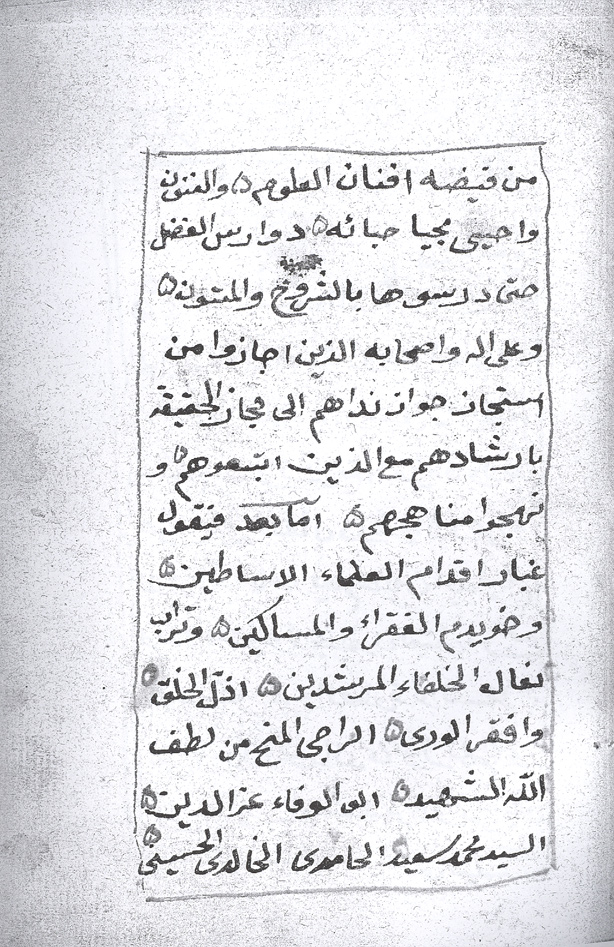 من فيضه افنان العلوم ە والفنون
واحيى بمحيا حبائه ە دوارس الفضل
حتى درسوها بالشروح والمتون ە
وعلى اله واصحابه الذين اجازوا من
استجاز جواز نداهم الى مجاز الحقيقة
بارشادهم مع الذين اتبعوهم ە و
نهجوا مناهجهم ە اما بعد فيقول
غبار اقدام العلماء الاساطين ە
وخويدم الفقراء والمساكين ە وتراب
نعال الخلفاء المرشدين ە اذل الخلق ە
وافقر الورى ە الراجى المنح من لطف
الله الشهيد ە ابو الوفاء عز الدين ە
السيد محمد سعيد الحامدى الخالدى الحسينى ە